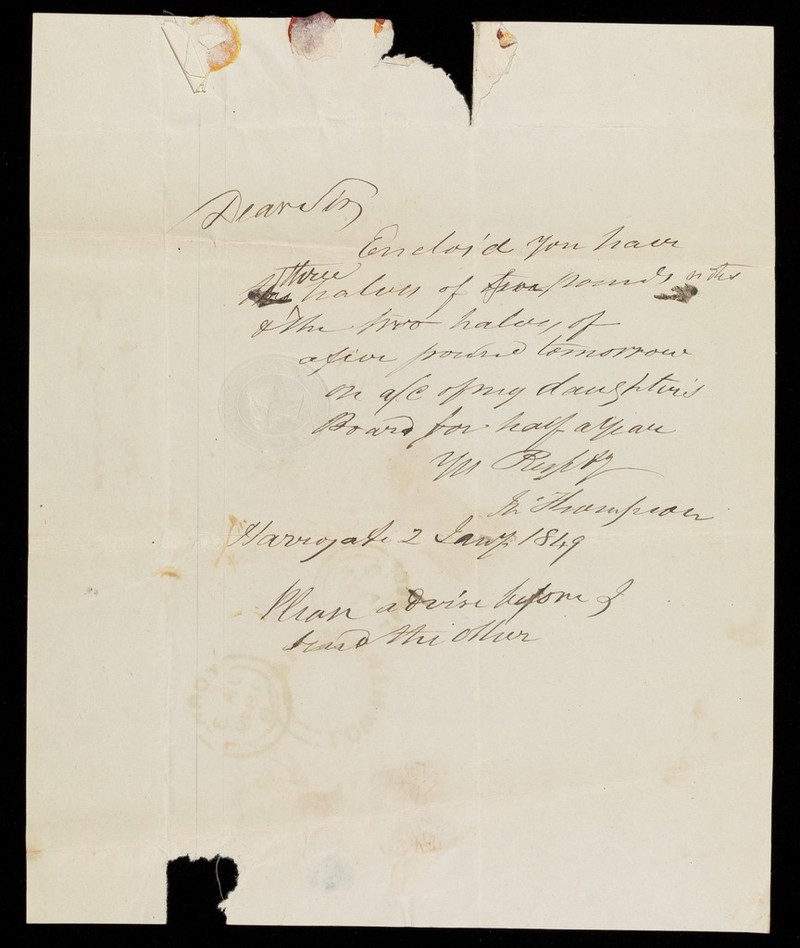 Dear Sir,
Enclos'd You have
three halves of five pounds notes
& the two halves of
a five pound tomorrow
on a/c of my daughter's
Board for half a Year
Yrs Respfy
Jn Thompson
Harrogate 2 Jany 1849
Please advise before I
send the other